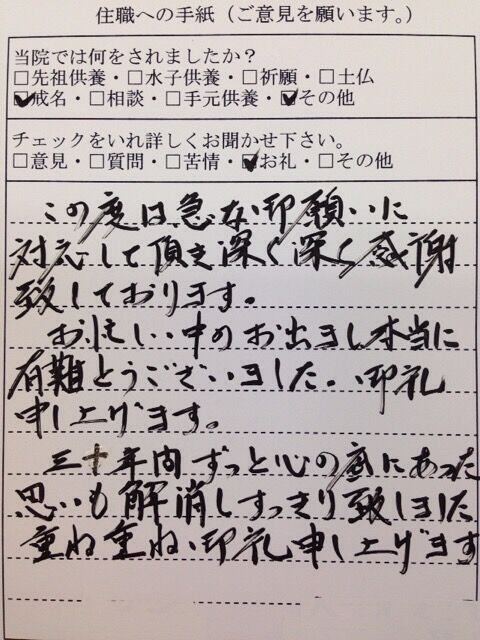 住職への手紙（ご意見を願います。）
当院では何をされましたか？
□先祖供養・□水子供養・□祈願・□土仏
☑戒名・□相談・□手元供養・☑その他
チェックをいれ詳しくお聞かせ下さい。
□意見・□質問・□苦情・☑お礼・□その他
この度は急な御願いに
対応して頂き深く深く感謝
致しております。
お忙しい中のお出まし本当に
有難とうございました。御礼
申し上げます。
三十年間ずっと心の底にあった
思いも解消しすっきり致しました
重ね重ね御礼申し上げます